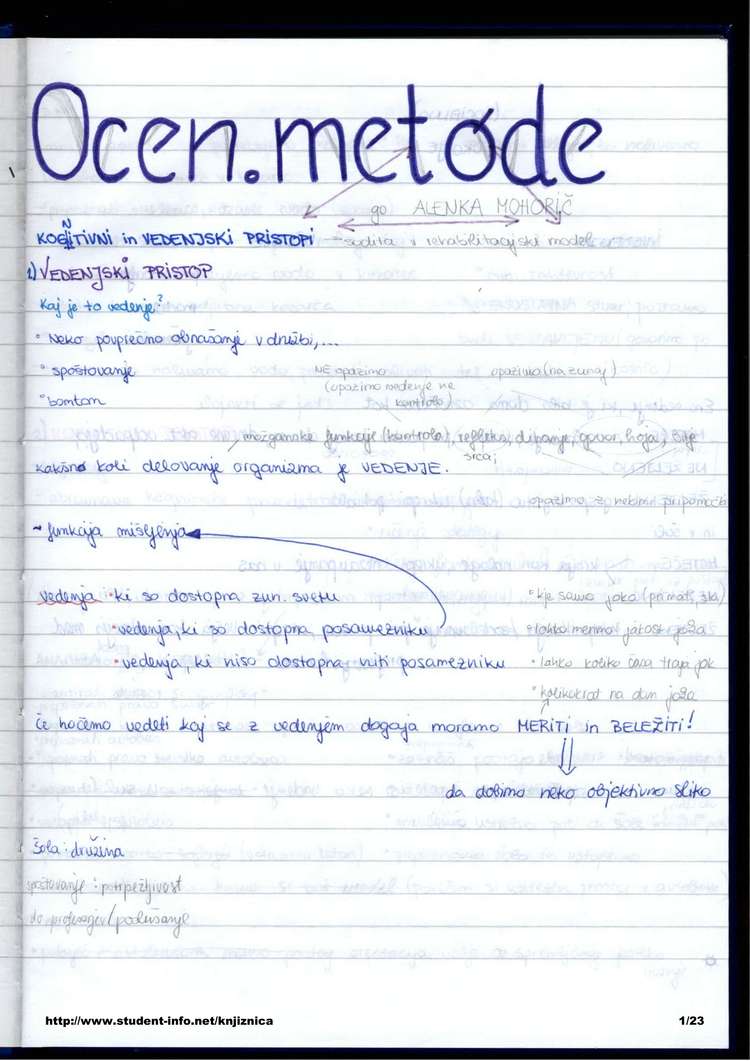 Ocen. metode
ga ALENKA MOHORIČ
KOGNITIVNI in VEDENJSKI PRISTOPI - sodita v rehabilitacijski model
1) VEDENJSKI PRISTOP
Kaj je to vedenje?
• Neko povprečno obnašanje v družbi,...
• spoštovanje NE opazimo opazimo (na zunaj)
(opazimo vedenje ne
• bonton kontrolo)
možganske funkcije (kontrola), refleksi, dihanje, govor, hoja, bitje
srca;
kakšno koli delovanje organizma je VEDENJE.
opazimo z nekimi pripomočki
~ funkcija mišljenja
vedenja • ki so dostopna zun. svetu • kje samo joka
• vedenja, ki so dostopna posamezniku • lahko merimo jakost joka
• vedenja, ki niso dostopna niti posamezniku • lahko koliko časa traja jok
• kolikokrat na dan joka
če hočemo vedeti kaj se z vedenjem dogaja moramo MERITI in BELEŽITI!
da dobimo neko objektivno sliko
šola : družina
spoštovanje : potrpežljivost
do profesorjev / poslušanje
http://www.student-info.net/knjiznica 1/23